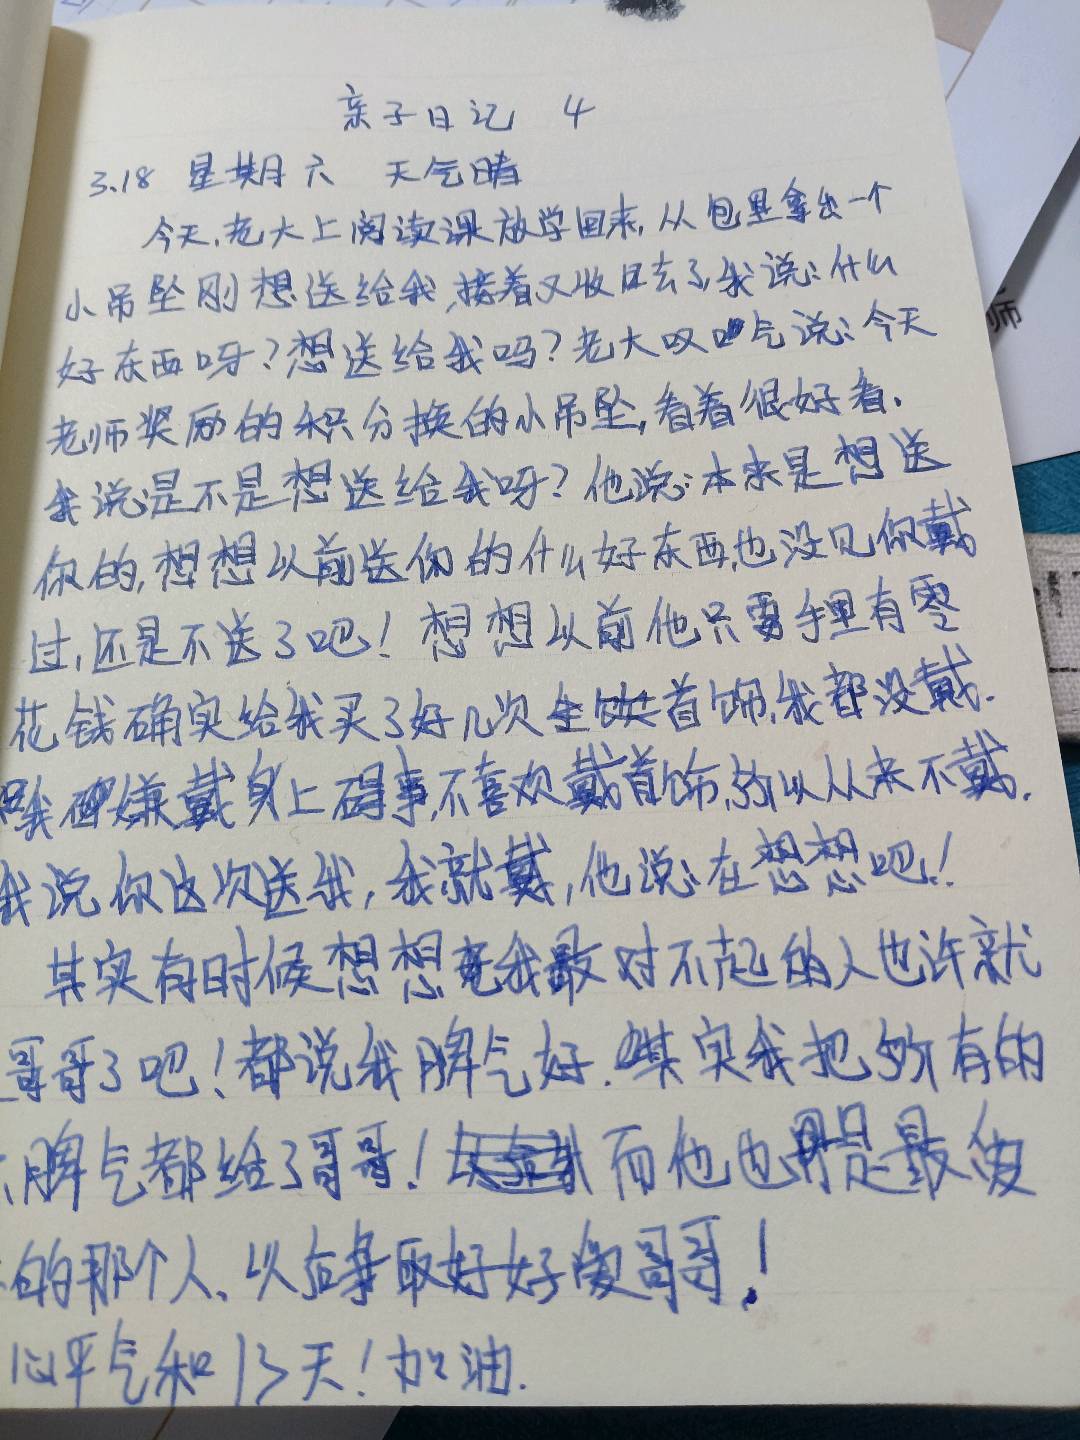 亲子日记 4
3.18 星期六 天气晴
今天,老大上阅读课放学回来,从包里拿出一个
小吊坠刚想送给我,接着又收回去了,我说:什么
好东西呀?想送给我吗?老大叹口气说:今天
老师奖励的积分换的小吊坠,看着很好看.
我说是不是想送给我呀?他说:本来是想送
你的,想想以前送你的什么好东西,也没见你戴
过,还是不送了吧!想想以前他只要手里有零
花钱确实给我买了好几次首饰,我都没戴.
我嫌戴身上碍事,不喜欢戴首饰,所以从来不戴.
我说你这次送我,我就戴,他说:在想想吧!
其实有时候想想我最对不起的人也许就
哥哥了吧!都说我脾气好.其实我把所有的
脾气都给了哥哥!而他也是最爱
的那个人、以后争取好好爱哥哥!
心平气和13天!加油.
师